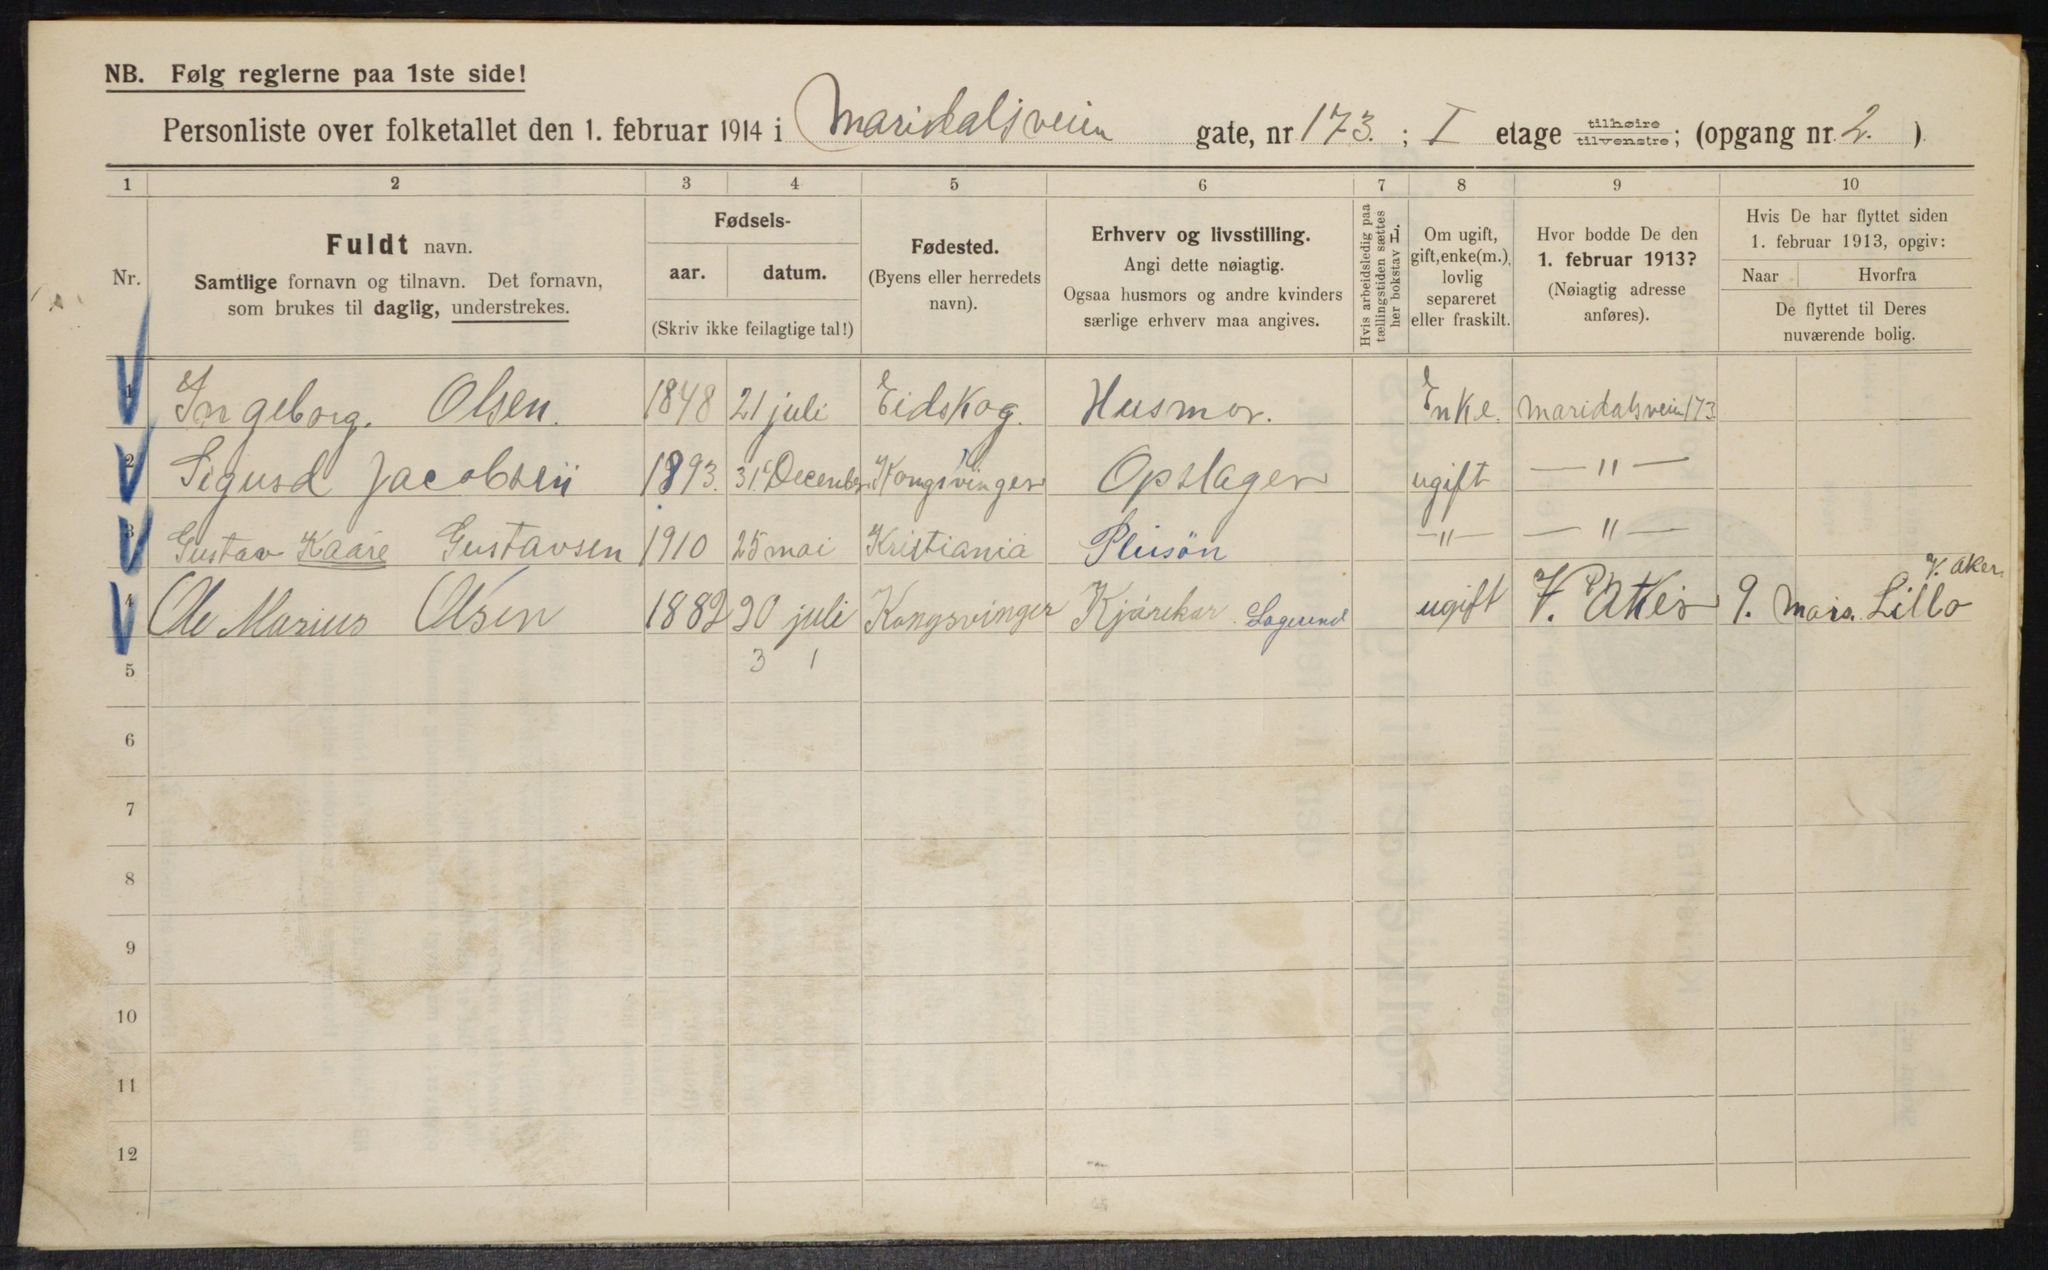 NB. Følg reglerne paa 1ste side!
Personliste over folketallet den 1. februar 1914 i Maridalsveien gate, nr 173. ; I etage tilhøire tilvenstre; (opgang nr. 2. )
1 2 3 4 5 6 7 8 9 10
Nr.
Fuldt navn.
Samtlige fornavn og tilnavn. Det fornavn,
som brukes til daglig, understrekes.
Fødsels-
aar. datum.
(Skriv ikke feilagtige tal!)
Fødested.
(Byens eller herredets
navn).
Erhverv og livsstilling.
Angi dette nøiagtig.
Ogsaa husmors og andre kvinders
særlige erhverv maa angives.
Hvis arbeidsledig paa
tællingstiden sættes
her bokstav L
Om ugift,
gift, enke(m.),
lovlig
separeret
eller fraskilt.
Hvor bodde De den
1. februar 1913?
(Nøiagtig adresse
anføres).
Hvis De har flyttet siden
1. februar 1913, opgiv:
Naar Hvorfra
De flyttet til Deres
nuværende bolig.
1 Ingeborg. Olsen. 1848 21 juli Eidskog. Husmor. Enke. Maridalsveien 173
2 Sigurd Jacobsen 1893. 31. December Kongsvinger Opslager ugift — " —
3 Gustav Kaare Gustavsen 1910 25 mai Kristiania Pleisøn — " — — " —
V. Aker.
4 Ole Marius Olsen 1882 20 juli Kongsvinger Kjørekar Logerend ugift V. Aker 9. Lillo
3 1
5
6
7
8
9
10
11
12